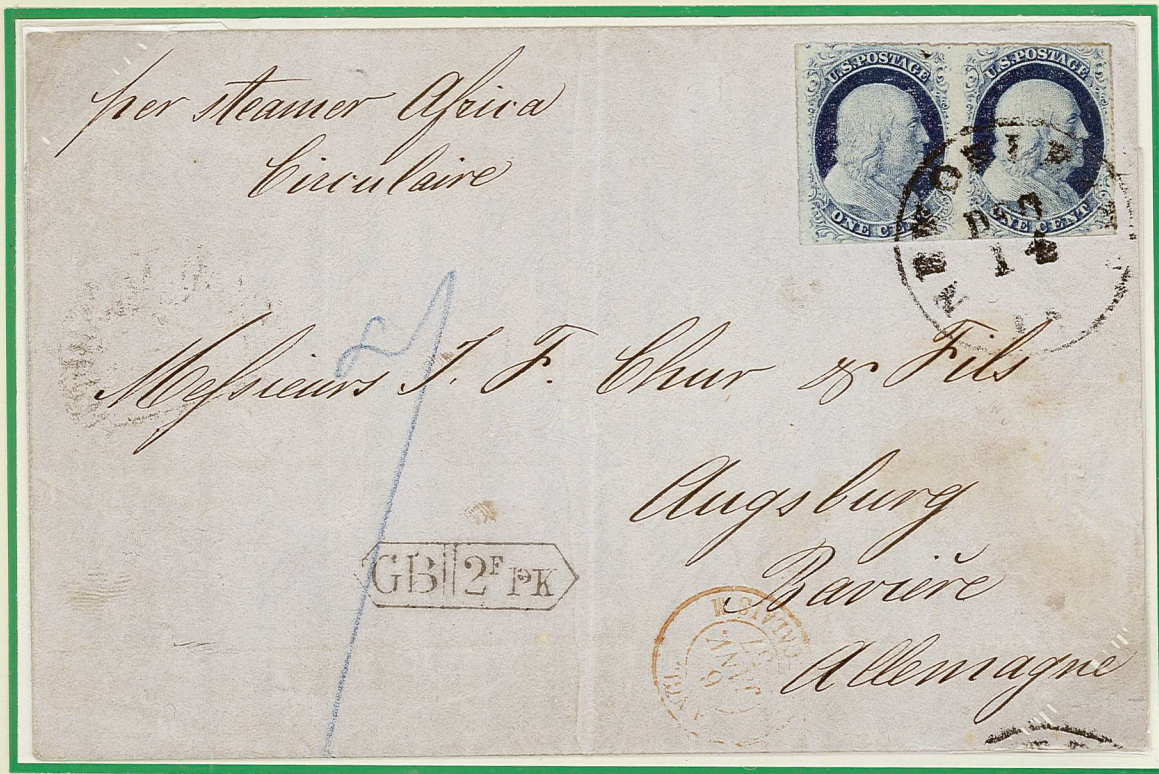 per steamer Africa
Circulaire
U.S. POSTAGE
ONE CENT
U.S. POSTAGE
ONE CENT
NEW ORLEANS
14
Messieurs J. F. Chur & Fils
Augsburg
Bavière
Allemagne
GB 2F PK
ANGL. CALAIS
6
JANV.
57